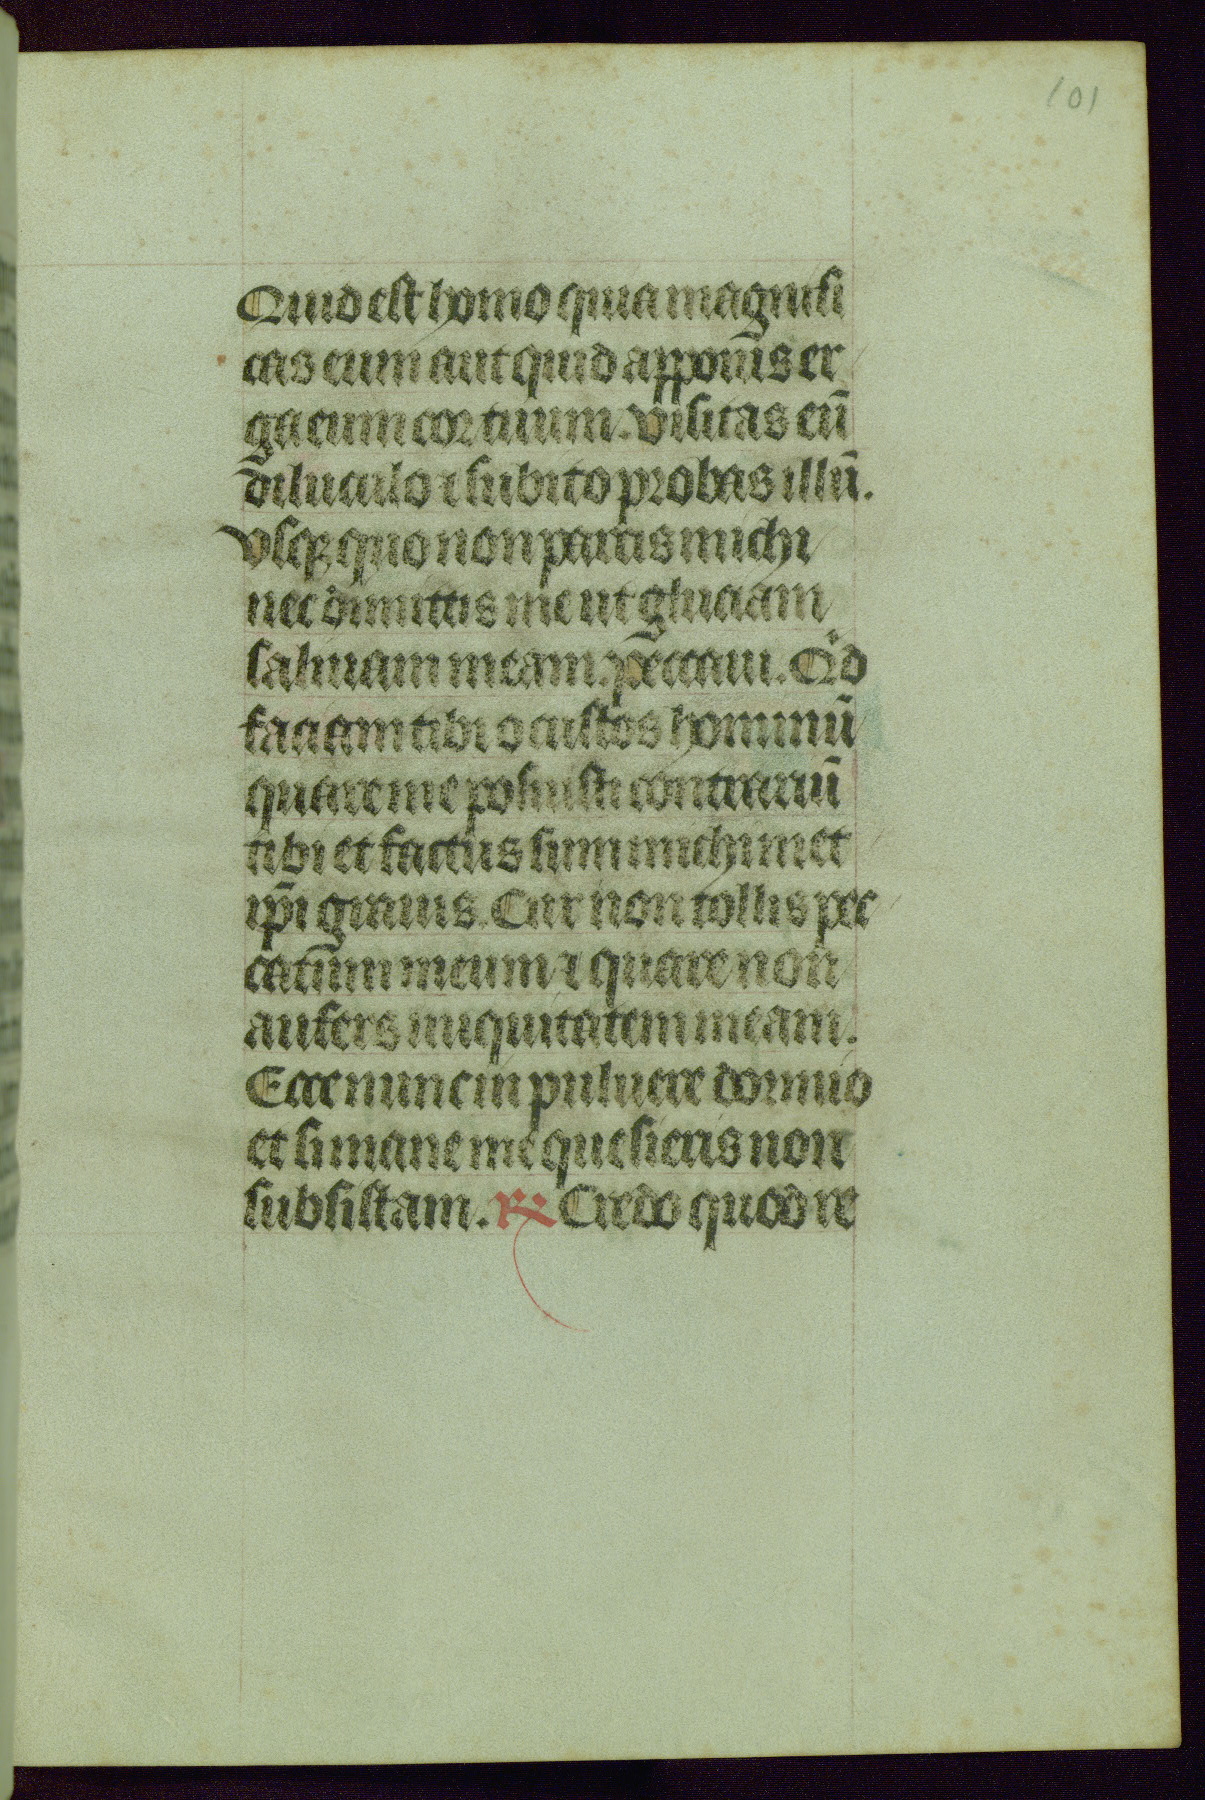 101
Quid est homo quia magnifi
cas eum aut quid apponis er
ga eum cor tuum. visitas eū
diluculo ⁊ subito probas illū.
vsqꝫ quo non parcis michi
nec dimittis me ut glutiam
saliuam meam. peccaui. Qd
faciam tibi o custos hominū
quare me posuisti contrariū
tibi et factus sum michimet
ip̄i grauis. Cur non tollis pec
catum meum ⁊ quare non
aufers iniquitatem meam.
Ecce nunc in puluere dormio
et si mane me quesieris non
subsistam. ℟ Credo quod re